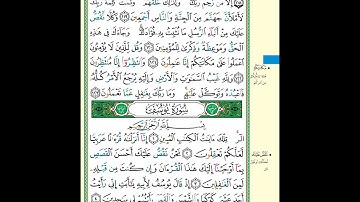 إِلَّا مَن رَّحِمَ رَبُّكَ وَلِذَٰلِكَ خَلَقَهُمْ وَتَمَّتْ كَلِمَةُ رَبِّكَ
لَأَمْلَأَنَّ جَهَنَّمَ مِنَ الْجِنَّةِ وَالنَّاسِ أَجْمَعِينَ ۝ وَكُلًّا نَّقُصُّ
عَلَيْكَ مِنْ أَنبَاءِ الرُّسُلِ مَا نُثَبِّتُ بِهِ فُؤَادَكَ وَجَاءَكَ فِي هَٰذِهِ
الْحَقُّ وَمَوْعِظَةٌ وَذِكْرَىٰ لِلْمُؤْمِنِينَ ۝ وَقُل لِّلَّذِينَ لَا يُؤْمِنُونَ
اعْمَلُوا عَلَىٰ مَكَانَتِكُمْ إِنَّا عَامِلُونَ ۝ وَانتَظِرُوا إِنَّا مُنتَظِرُونَ
۝ وَلِلَّهِ غَيْبُ السَّمَاوَاتِ وَالْأَرْضِ وَإِلَيْهِ يُرْجَعُ الْأَمْرُ كُلُّهُ
فَاعْبُدْهُ وَتَوَكَّلْ عَلَيْهِ وَمَا رَبُّكَ بِغَافِلٍ عَمَّا تَعْمَلُونَ ۝
سُورَةُ يُوسُفَ
بِسْمِ اللَّهِ الرَّحْمَٰنِ الرَّحِيمِ
الر تِلْكَ آيَاتُ الْكِتَابِ الْمُبِينِ ۝ إِنَّا أَنزَلْنَاهُ قُرْآنًا عَرَبِيًّا
لَّعَلَّكُمْ تَعْقِلُونَ ۝ نَحْنُ نَقُصُّ عَلَيْكَ أَحْسَنَ الْقَصَصِ
بِمَا أَوْحَيْنَا إِلَيْكَ هَٰذَا الْقُرْآنَ وَإِن كُنتَ مِن قَبْلِهِ
لَمِنَ الْغَافِلِينَ ۝ إِذْ قَالَ يُوسُفُ لِأَبِيهِ يَا أَبَتِ إِنِّي رَأَيْتُ
أَحَدَ عَشَرَ كَوْكَبًا وَالشَّمْسَ وَالْقَمَرَ رَأَيْتُهُمْ لِي سَاجِدِينَ